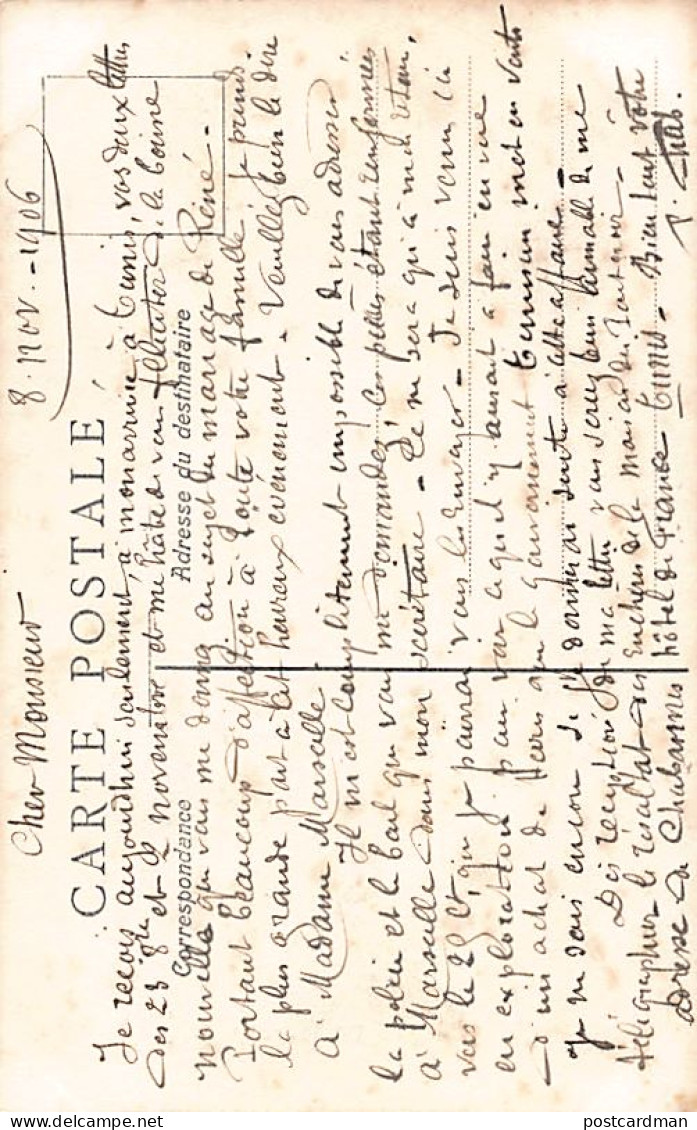 8. nov. - 1906
Cher Monsieur
CARTE POSTALE
Je reçois aujourdhui seulement, à mon arrivée à Tunis, vos deux lettres
des 23 8bre et 2 novembre et me hâte de vous féliciter de la bonne
Correspondance
Adresse du destinataire
nouvelle que vous me donnez au sujet du mariage de René.
Portant beaucoup d'affection à toute votre famille je prends
la plus grande part à cet heureux événement. Veuillez bien le dire
à Madame Marseille
Il m'est complètement impossible de vous adresser
la police et le bail que vous me demandez, ces pièces étant renfermées
à Marseille dans mon secrétaire - Ce ne sera qu'à mon retour,
vers le 25 ct, que je pourrai vous les envoyer - Je suis venu ici
en exploration pour voir ce qu'il y aurait à faire en vue
d'un achat de que le gouvernement tunisien met en vente
Je ne sais encore si je donnerai suite à cette affaire -
Dès réception de ma lettre vous serez bien aimable de me
télégraphier le résultat des Enchères de la maison du -
adresse de Chabannes hôtel de France Tunis - Bien tout votre
P. Chab.
postcardman